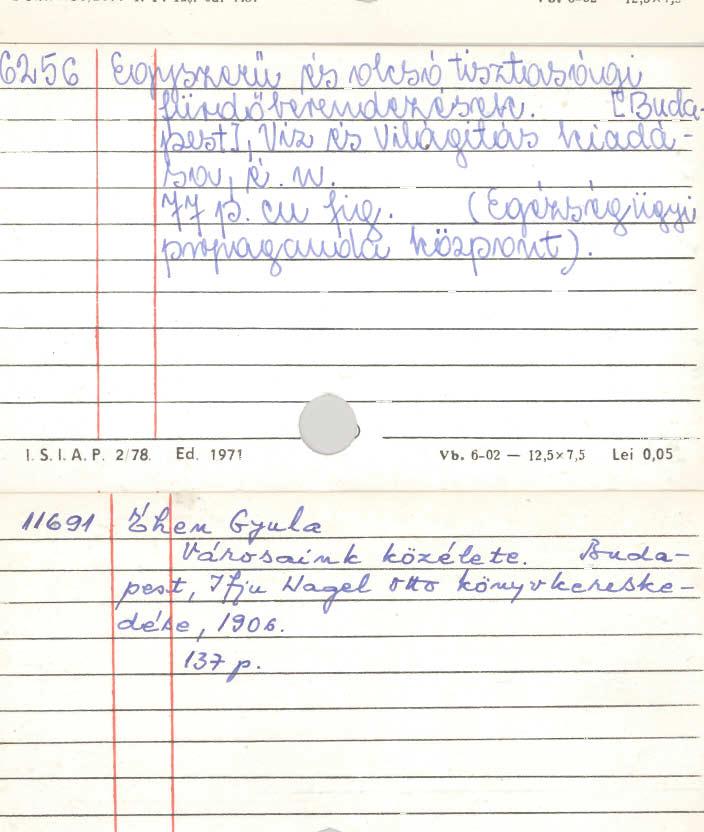 6256 Egyszerü és olcsó tisztasági
fürdőberendezések. [Buda-
pest], Víz és Világitás kiadá-
sa, é. n.
77 p. cu fig. (Egészségügyi
propaganda központ).
I. S. I. A. P. 2/78. Ed. 1971 Vb. 6-02 — 12,5×7,5 Lei 0,05
11691 Éhen Gyula
Városaink közélete. Buda-
pest, Ifju Nagel Otto könyvkereske-
dése, 1906.
137 p.